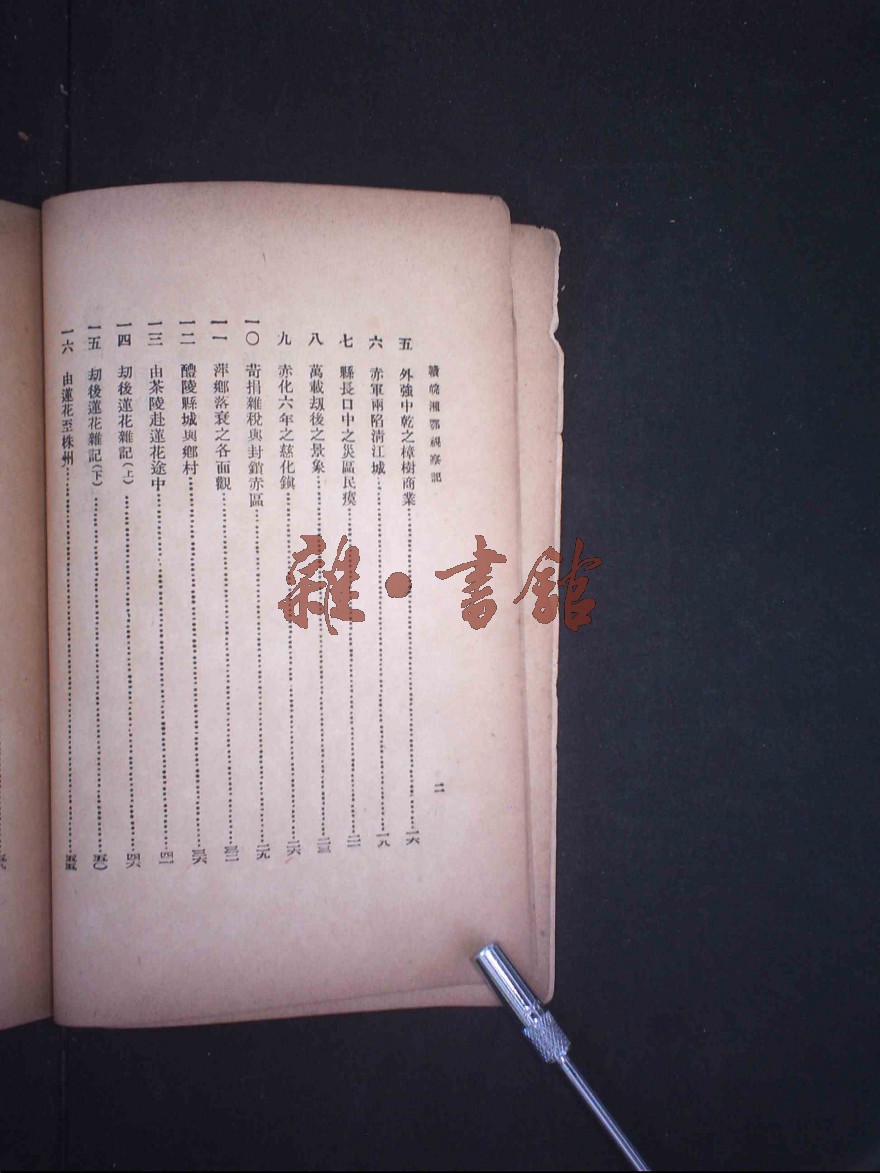 贛皖湘鄂視察記
二
五 外強中乾之樟樹商業 一六
六 赤軍兩陷清江城 一八
七 縣長口中之災區民瘼 二一
八 萬載刼後之景象 二三
九 赤化六年之慈化鎮 二六
一〇 苛捐雜稅與封鎖赤區 二九
一一 萍鄉落衰之各面觀 三二
一二 醴陵縣城與鄉村 三六
一三 由茶陵赴蓮花途中 四一
一四 刼後蓮花雜記(上) 四六
一五 刼後蓮花雜記(下) 五〇
一六 由蓮花至株州 五五
雜·書館